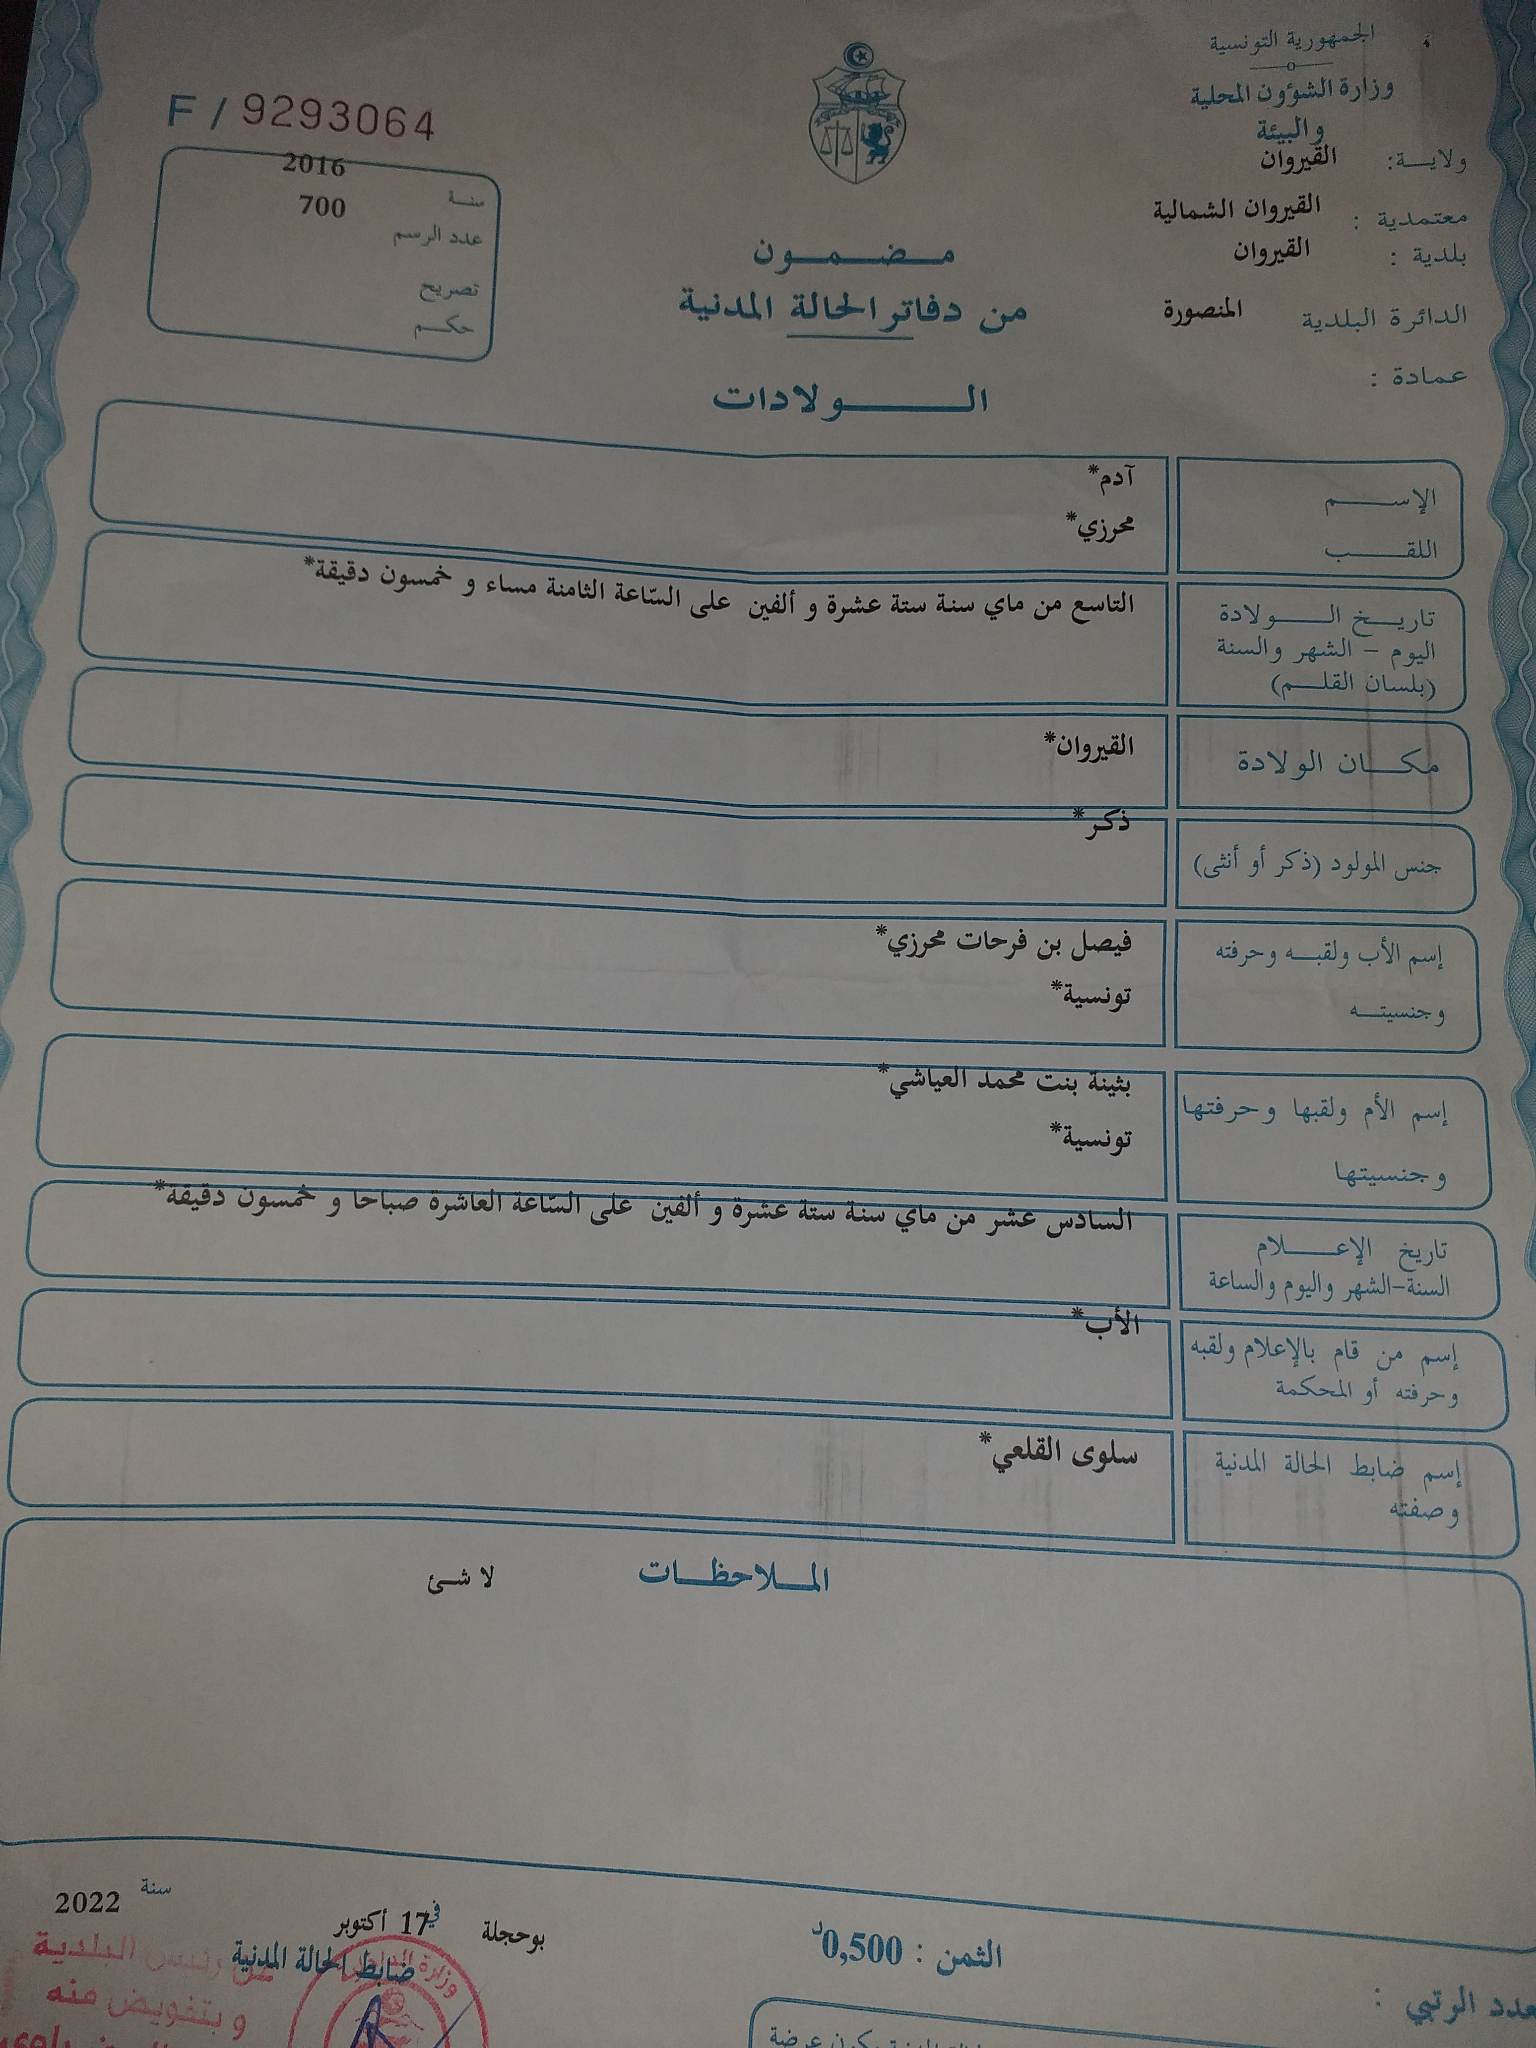 الجمهورية التونسية
وزارة الشؤون المحلية
والبيئة
ولاية: القيروان
معتمدية : القيروان الشمالية
بلدية : القيروان
الدائرة البلدية المنصورة
عمادة :
F / 9293064
سنة 2016
عدد الرسم 700
تصريح
حكم
مضمون
من دفاتر الحالة المدنية
الولادات
الإسم آدم*
اللقب محرزي*
تاريخ الولادة
اليوم - الشهر والسنة
(بلسان القلم)
التاسع من ماي سنة ستة عشرة و ألفين على السّاعة الثامنة مساء و خمسون دقيقة*
مكان الولادة القيروان*
جنس المولود (ذكر أو أنثى) ذكر*
إسم الأب ولقبه وحرفته فيصل بن فرحات محرزي*
وجنسيته تونسية*
إسم الأم ولقبها وحرفتها بثينة بنت محمد العياشي*
وجنسيتها تونسية*
تاريخ الإعلام
السنة-الشهر واليوم والساعة
السادس عشر من ماي سنة ستة عشرة و ألفين على السّاعة العاشرة صباحا و خمسون دقيقة*
إسم من قام بالإعلام ولقبه
وحرفته أو المحكمة
الأب*
إسم ضابط الحالة المدنية
وصفته
سلوى القلعي*
الملاحظات لا شئ
بوحجلة في 17 أكتوبر سنة 2022
ضابط الحالة المدنية
عن رئيس البلدية
وبتفويض منه
وزارة
الثمن : 0,500د
عدد الرتبي :
يكون عرضة